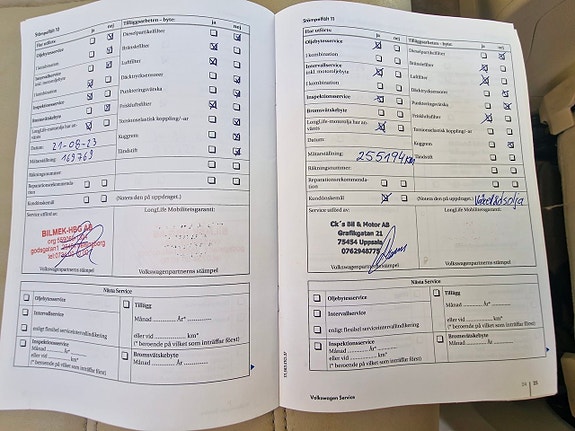 Stämpelfält 12
Har utförts: ja nej
Oljebytesservice
i kombination
Intervallservice
inkl. motoroljebyte
i kombination
Inspektionsservice
Bromsvätskebyte
LongLife-motorolja har an-
vänts
Datum: 21-08-23
Mätarställning: 169769
Räkningsnummer:
Reparationsrekommenda-
tion
Kundönskemål
Service utförd av:
BILMEK-HBG AB
Volkswagenpartnerns stämpel
Tilläggsarbeten – byte: ja nej
Dieselpartikelfilter
Bränslefilter
Luftfilter
Däcktrycksensor
Punkteringsvätska
Friskluftsfilter
Torsionselastisk koppling/-ar
Kuggrem
Tändstift
(Notera den på uppdraget.)
LongLife Mobilitetsgaranti:
Volkswagenpartnerns stämpel
Nästa Service
Oljebytesservice
Intervallservice
enligt flexibel serviceintervallindikering
Inspektionsservice
Månad ........ År*........
eller vid ........ km*
(* beroende på vilket som inträffar först)
Tillägg
Månad ........ År*........
eller vid ........ km*
(* beroende på vilket som inträffar först)
Bromsvätskebyte
Månad ........ År ........
Volkswagen Service
Stämpelfält 13
Har utförts: ja nej
Oljebytesservice
i kombination
Intervallservice
inkl. motoroljebyte
i kombination
Inspektionsservice
Bromsvätskebyte
LongLife-motorolja har an-
vänts
Datum:
Mätarställning: 255194 km
Räkningsnummer:
Reparationsrekommenda-
tion
Kundönskemål
Service utförd av:
Ck´s Bil & Motor AB
Grafikgatan 21
75454 Uppsala
0762948775
Volkswagenpartnerns stämpel
Tilläggsarbeten – byte: ja nej
Dieselpartikelfilter
Bränslefilter
Luftfilter
Däcktrycksensor
Punkteringsvätska
Friskluftsfilter
Torsionselastisk koppling/-ar
Kuggrem
Tändstift
(Notera den på uppdraget.)
LongLife Mobilitetsgaranti:
Volkswagenpartnerns stämpel
Nästa Service
Oljebytesservice
Intervallservice
enligt flexibel serviceintervallindikering
Inspektionsservice
Månad ........ År*........
eller vid ........ km*
(* beroende på vilket som inträffar först)
Tillägg
Månad ........ År*........
eller vid ........ km*
(* beroende på vilket som inträffar först)
Bromsvätskebyte
Månad ........ År ........
Volkswagen Service